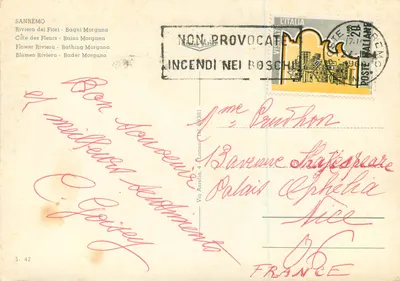 SANREMO
Riviera dei Fiori - Bagni Morgana
Côte des Fleurs - Bains Morgana
Flower Riviera - Bathing Morgana
Blumen Riviera - Bader Morgana
NON PROVOCATE
INCENDI NEI BOSCHI
ITALIA
POSTE ITALIANE
Bon souvenir
et meilleurs sentiments
C. Goisey
Mme Prudhon
1 Bavenue Shakespeare
Palais Ophelia
Nice
06
FRANCE
S. 42